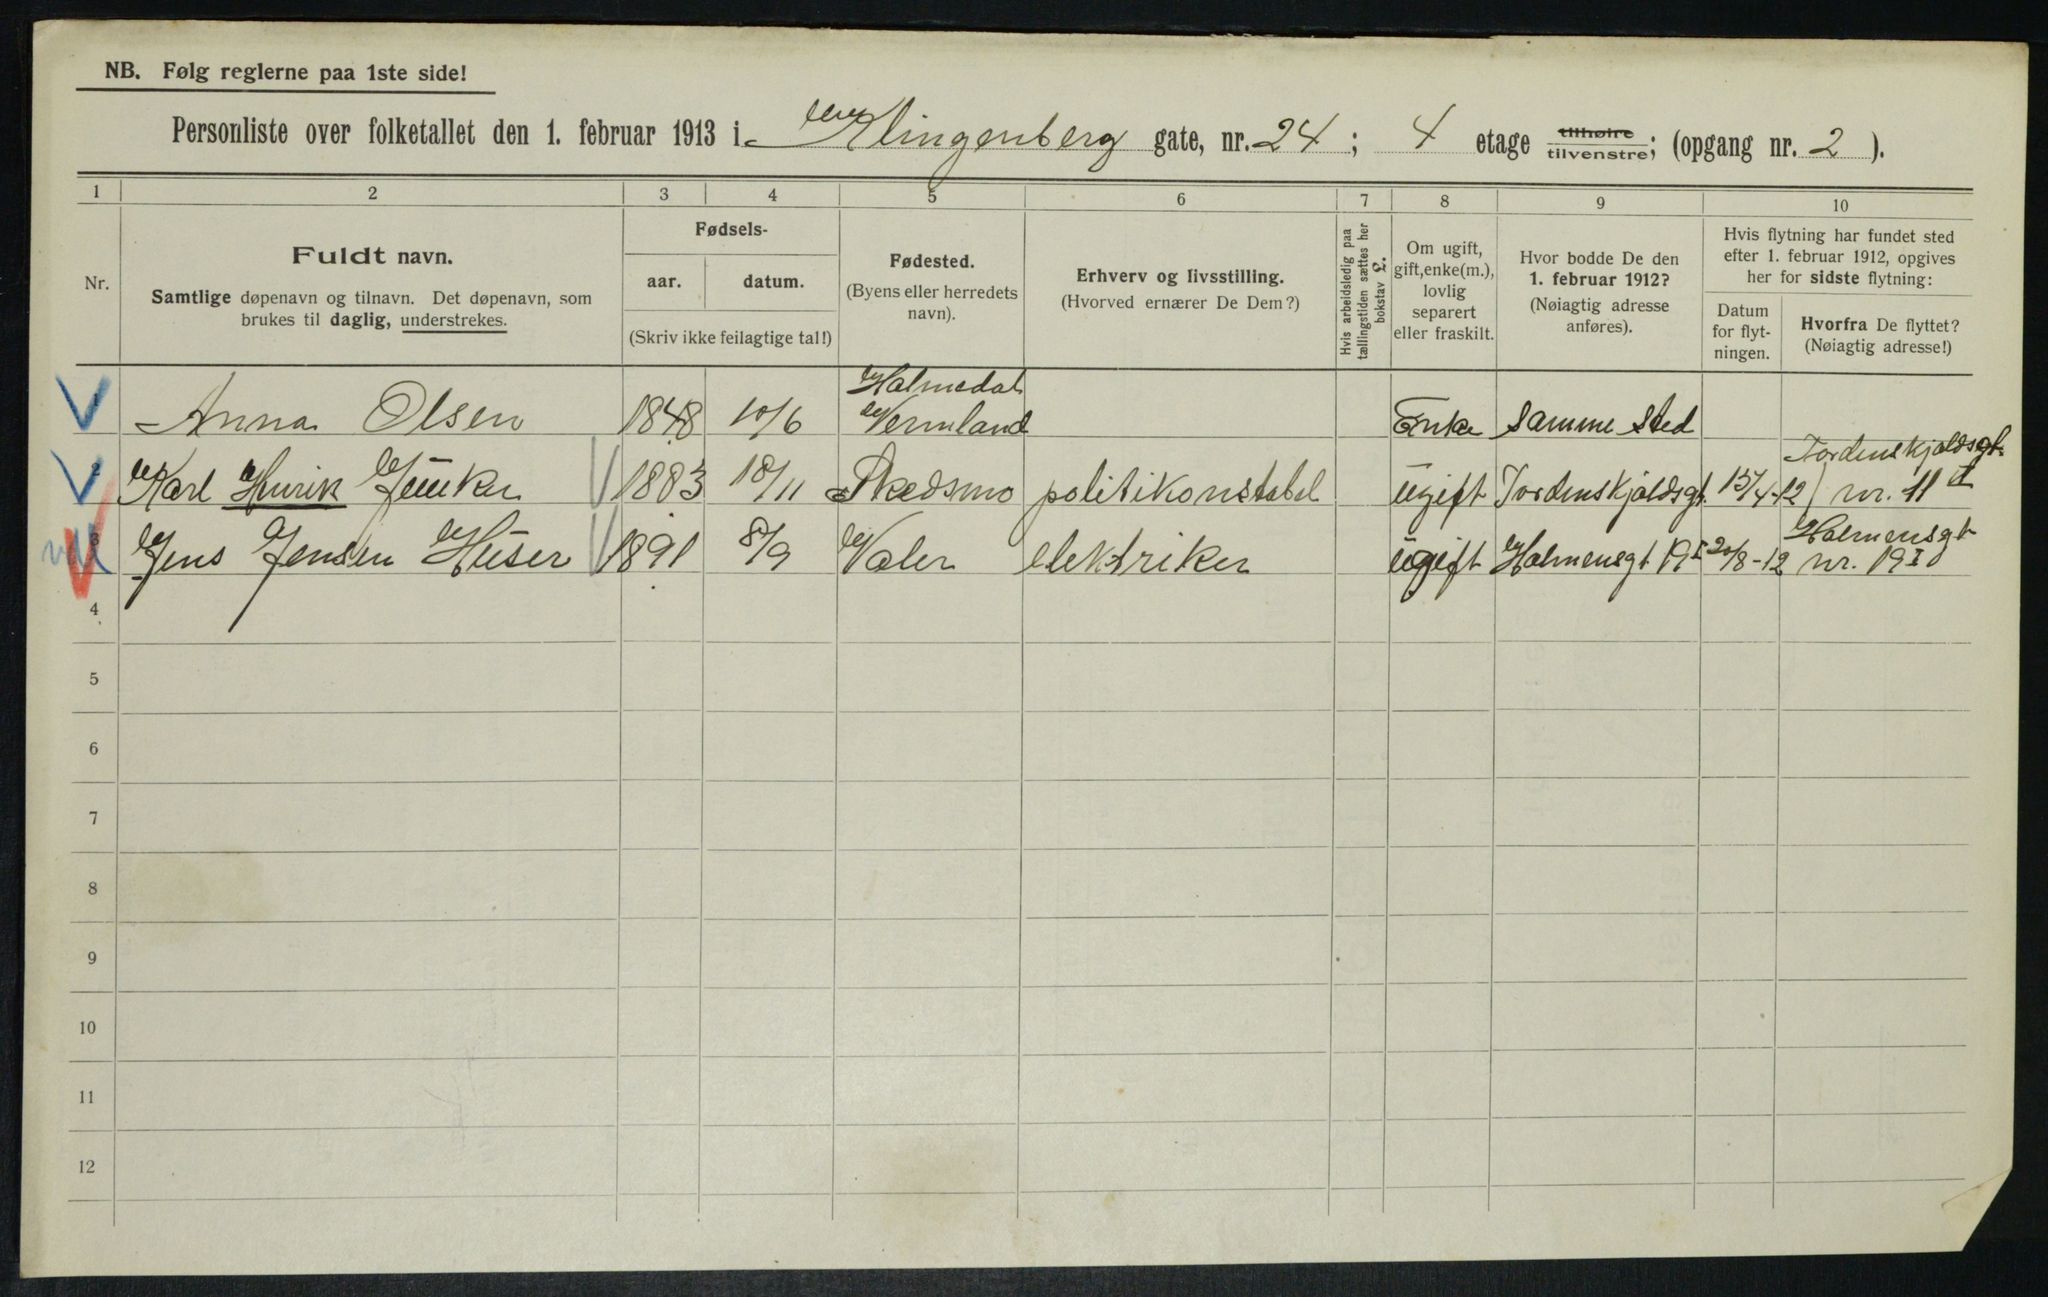 NB. Følg reglerne paa 1ste side!
Personliste over folketallet den 1. februar 1913 i Klingenberg gate, nr. 24; 4 etage tilhøire tilvenstre; (opgang nr. 2).
1 2 3 4 5 6 7 8 9 10
Nr.
Fuldt navn.
Samtlige døpenavn og tilnavn. Det døpenavn, som
brukes til daglig, understrekes.
Fødsels-
aar. datum.
(Skriv ikke feilagtige tal!)
Fødested.
(Byens eller herredets
navn).
Erhverv og livsstilling.
(Hvorved ernærer De Dem?)
Hvis arbeidsledig paa
tællingstiden sættes her
bokstav L.
Om ugift,
gift, enke(m.),
lovlig
separert
eller fraskilt.
Hvor bodde De den
1. februar 1912?
(Nøiagtig adresse
anføres).
Hvis flytning har fundet sted
efter 1. februar 1912, opgives
her for sidste flytning:
Datum
for flyt-
ningen.
Hvorfra De flyttet?
(Nøiagtig adresse!)
Anna Olsen 1848 10/6 Holmedal Vermland Enke samme sted
2 Karl Henrik Juuker 1883 18/11 Skedsmo politikonstabel ugift Tordenskjoldsgt. 15/4-12 Tordenskjoldsgt. nr. 11
3 Jens Jensen Huser 1891 8/9 Valer elektriker ugift Holmensgt 19 I 20/8-12 Holmensgt nr. 19 I
4
5
6
7
8
9
10
11
12